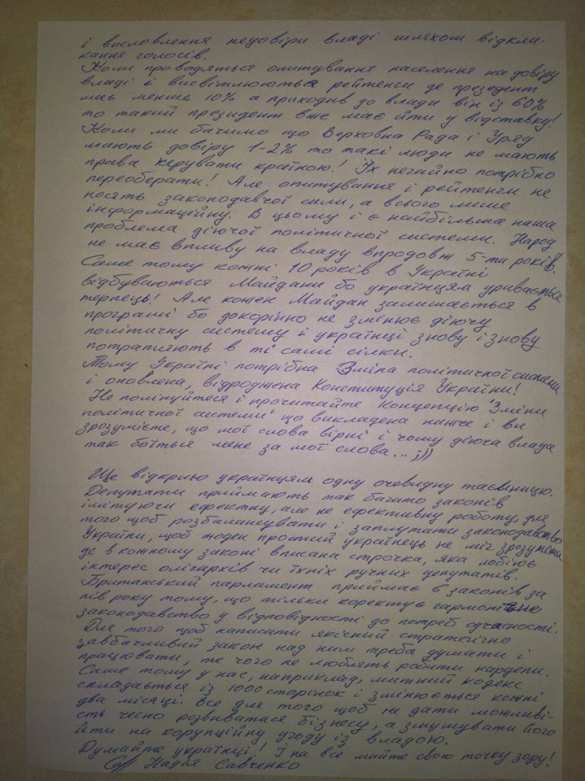 і висловлення недовіри владі шляхом відкли-
кання голосів.
Коли проводяться опитування населення на довіру
владі і висвітлюються рейтенги де президент
має менше 10% а приходив до влади він із 60%
то такий президент вже має йти у відставку!
Коли ми бачимо що Верховна Рада і Уряд
мають довіру 1-2% то такі люди не мають
права керувати країною! Їх негайно потрібно
переобирати! Але опитування і рейтенги не
носять законодавчої сили, а всього лише
інформаційну. В цьому і є найбільша наша
проблема діючої політичної системи. Народ
не має впливу на владу впродовж 5-ти років.
Саме тому кожні 10 років в Україні
відбуваються Майдани бо українцям уривається
терпець! Але кожен Майдан залишається в
програші бо докорінно не змінює діючу
політичну систему і українці знову і знову
потрапляють в ті самі сілки.
Тому Україні потрібна Зміна політичної системи
і оновлена, відроджена Конституція України!
Не полінуйтеся і прочитайте Концепцію "Зміни
політичної системи" що викладена нижче і ви
зрозумієте, що мої слова вірні і чому діюча влада
так боїться мене за мої слова... ;)))
Ще відкрию українцям одну очевидну таємницю.
Депутати приймають так багато законів
імітуючи ефектну, але не ефективну роботу для
того щоб розбалансувати і заплутати законодавство
України, щоб жоден простий українець не міг зрозуміти
де в кожному законі вписана строчка, яка лобіює
інтерес олігархів чи їхніх ручних депутатів.
Британський парламент приймає 6 законів за
пів року тому, що тільки коректує гармонічно
законодавство у відповідності до потреб сучасності.
Для того щоб написати якісний стратегічно
завбачливий закон над ним треба думати і
працювати, те чого не люблять робити нардепи.
Саме тому у нас, наприклад, митний кодекс
складається із 1000 сторінок і змінюється кожні
два місяці. Все для того щоб не дати можливі-
сть чесно розвиватися бізнесу, а змушувати його
йти на корупційну угоду із владою.
Думайте українці! І на все майте свою точку зору!
Надія Савченко